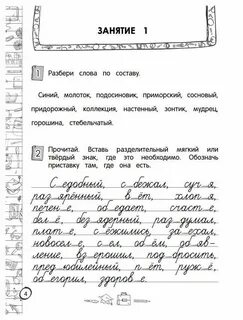 ЗАНЯТИЕ 1
1 Разбери слова по составу.
Синий, молоток, подосиновик, приморский, сосновый,
придорожный, коллекция, настенный, зонтик, мудрец,
горошина, стебельчатый.
2 Прочитай. Вставь разделительный мягкий или
твёрдый знак, где это необходимо. Обозначь
приставку там, где она есть.
С едобный, с бежал, суч я,
раз ярённый, в ёт, хлоп я,
печен е, об едает, счаст е,
бел ё, без ядерный, раз думал,
плат е, с ёжились, за ехал,
новосел е, с ел, об ём, об яв-
ление, вз ерошил, под бросить,
пред юбилейный, п ёт, руж ё,
об егорил, здоров е.
4